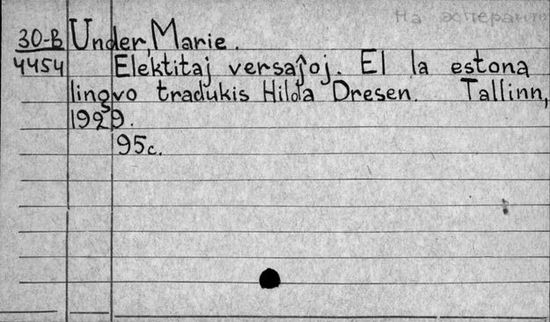 На эсперанто
30-В Under, Marie.
4454 Elektitaj versaĵoj. El la estona
lingvo tradukis Hilda Dresen. Tallinn,
1929.
95с.